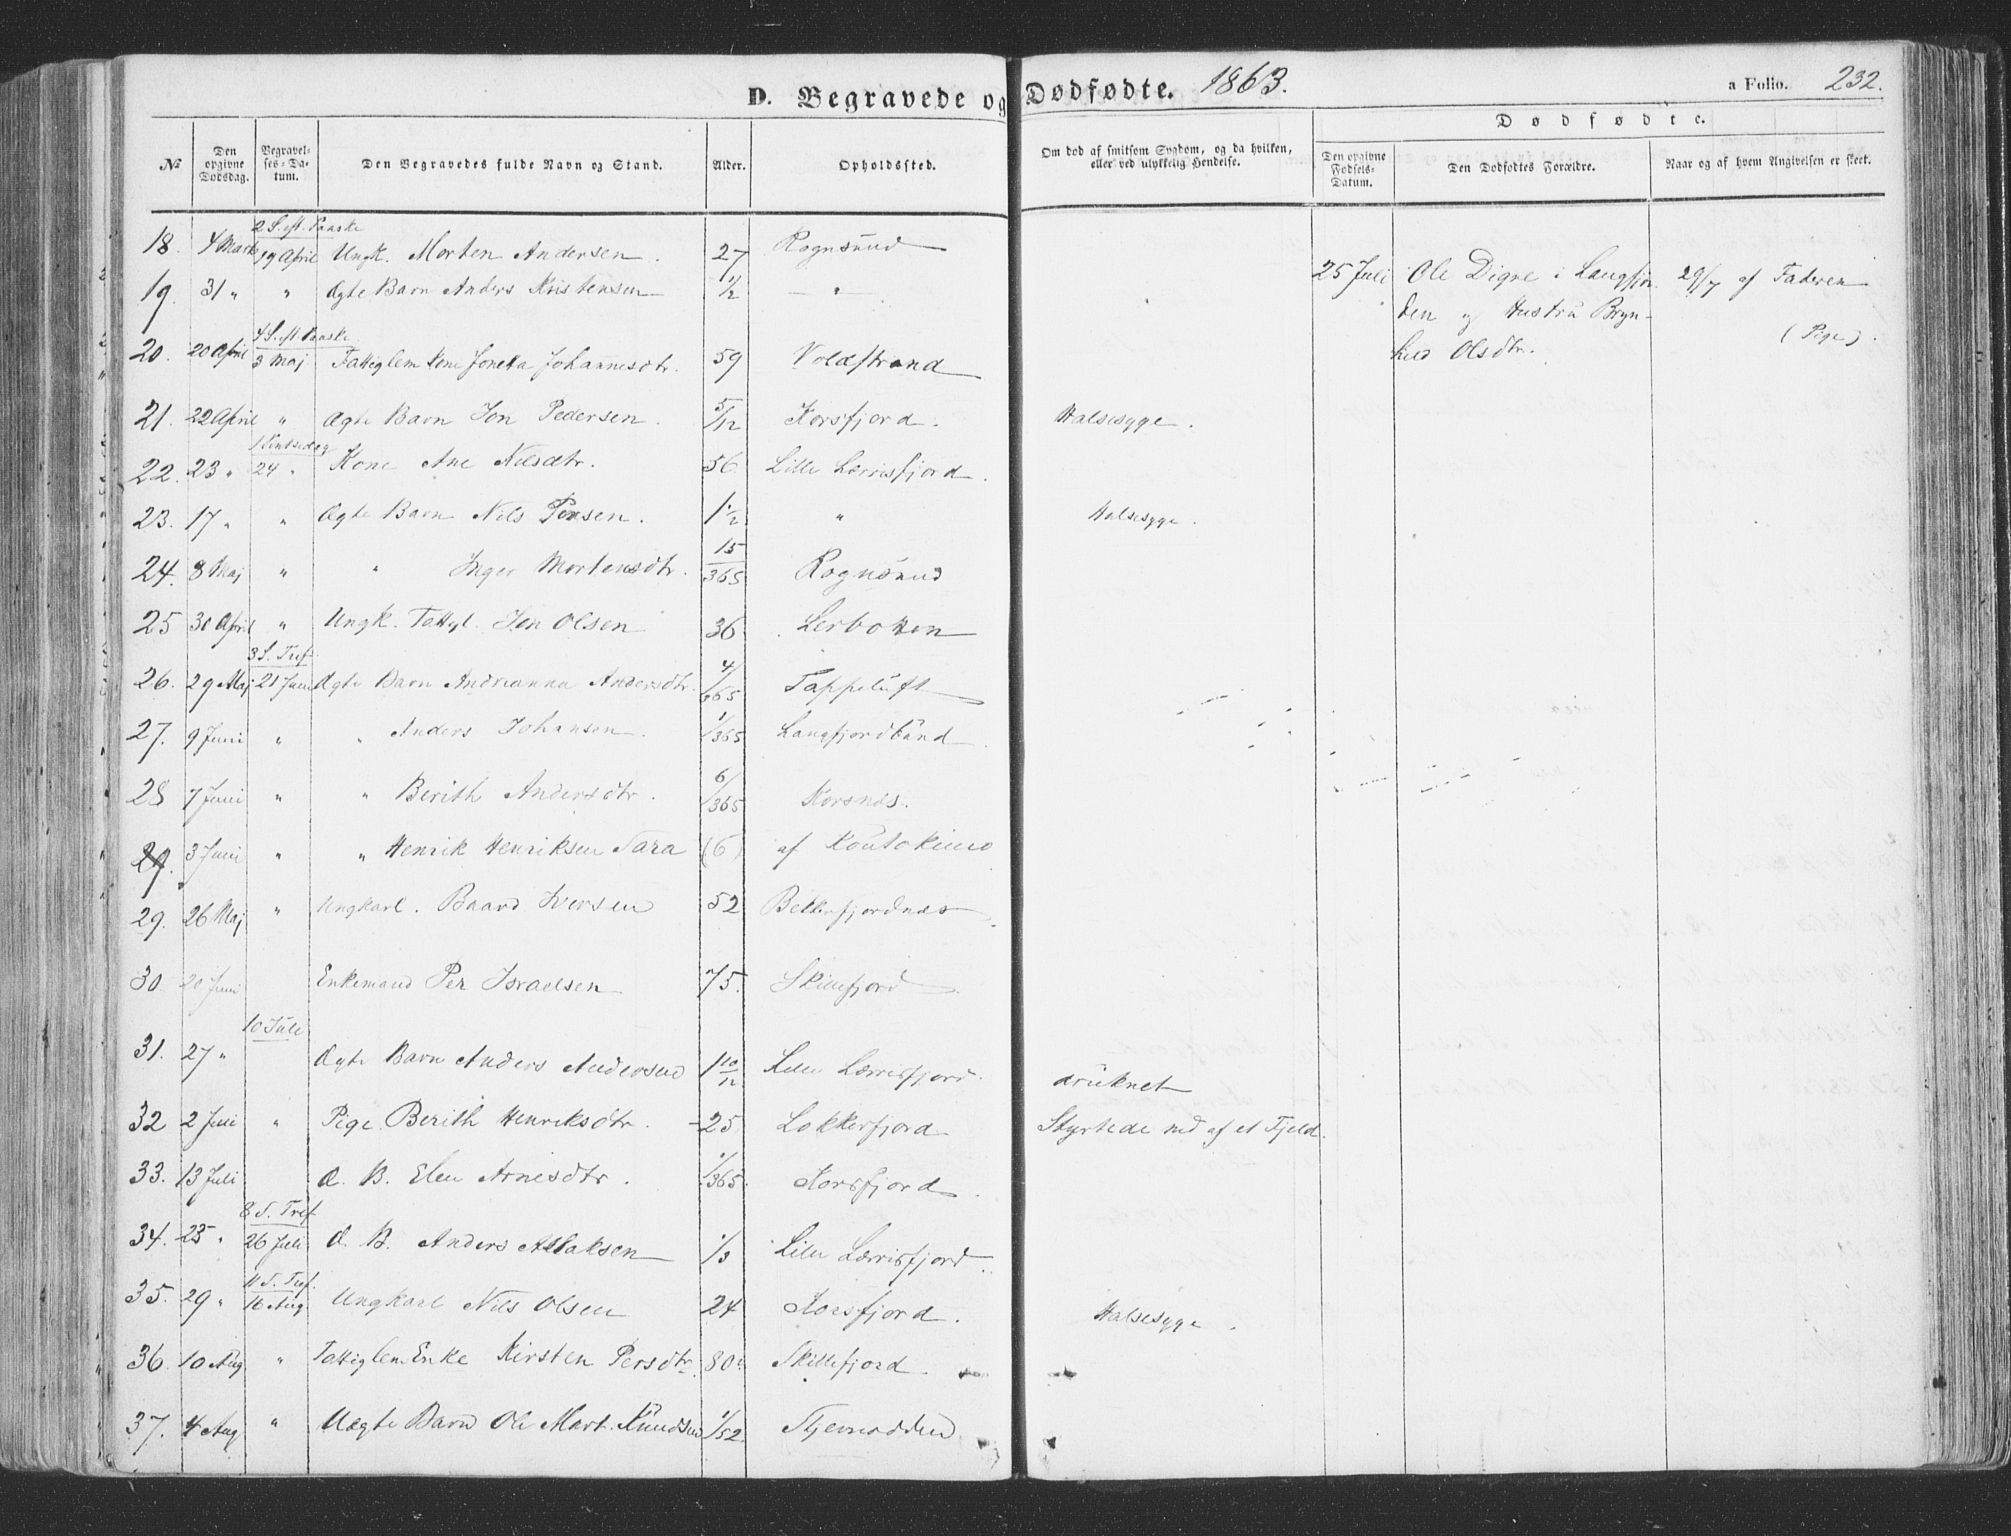 D. Begravede og Dødfødte. 1863. a Folio. 232.
Dødfødte.
No Den opgivne Dødsdag. Begravelses-Datum. Den Begravedes fulde Navn og Stand. Alder. Opholdssted. Om død af smitsom Sygdom, og da hvilken, eller ved ulykkelig Hendelse. Den opgivne Fødsels-Datum. Den Dødfødtes Forældre. Naar og af hvem Angivelsen er skeet.
2 S. eft. Paaske
18. 4 Marts 19 April Ungk. Morten Andersen. 27 Rognsund
25 Juli Ole Digre i Langfjor- 29/7 af Faderen
19. 31 " " Ægte Barn Anders Kristensen 1/2 — " —
den og Hustru Bryn- (Pige).
hild Olsdtr.
4 S. eft Paaske
20. 20 April 3 Maj Fattiglem Kone Johannesdtr. 59 Voldstrand
21. 22 April " Ægte Barn Jon Pedersen. 5/12 Korsfjord. Halsesyge.
1 Pintsedag
22. 23 " 24 " Kone Ane Nilsdtr. 56 Lille Lerrisfjord.
23. 17 " " Ægte Barn Nils Persen. 1 1/2 " Halsesyge.
24. 8 Maj " " Inger Mortensdtr. 15/365 Rognsund
25 30 April " Ungk. Fattigl. Jon Olsen 36 Lerbotten
3 S. Tref.
26. 29 Maj 21 Juni Ægte Barn Andrianna Andersdtr. 4/365 Tappeluft
27. 9 Juni " " Anders Johansen. 1/365 Langfjordbund.
28 7 Juni " " Berith Andersdtr. 6/365 Korsnes.
29. 3 Juni " " Henrik Henriksen Sara (6) af Koutokeino
29. 26 Maj " Ungkarl. Baard Iversen 52 Bekkerfjordnæs.
30. 20 Juni Enkemand Per Israelsen 75. Skillefjord.
10 Juli
31. 27 " Ægte Barn Anders Andersen 1 10/12 Lille Lerrisfjord. druknet
32 2 Juli " Pige Berith Henriksdtr. 25 Lokkerfjord Styrtede ned af et Fjeld.
33. 13 Juli Æ. B. Elen Arnesdtr. 1/365 Korsfjord.
8 S. Tref
34. 25 " 26 Juli Æ. B. Anders Aslaksen 1/3 Lille Lerrisfjord.
11 S. Tref.
35. 29 " 16 Aug. Ungkarl Nils Olsen 24 Korsfjord. Halsesyge.
36. 10 Aug. " Fattiglem Enke Kirsten Persdtr. 80 Skillefjord.
37. 4 Aug " Uægte Barn Ole Mart. Knudsen 1/52. Stjernodden